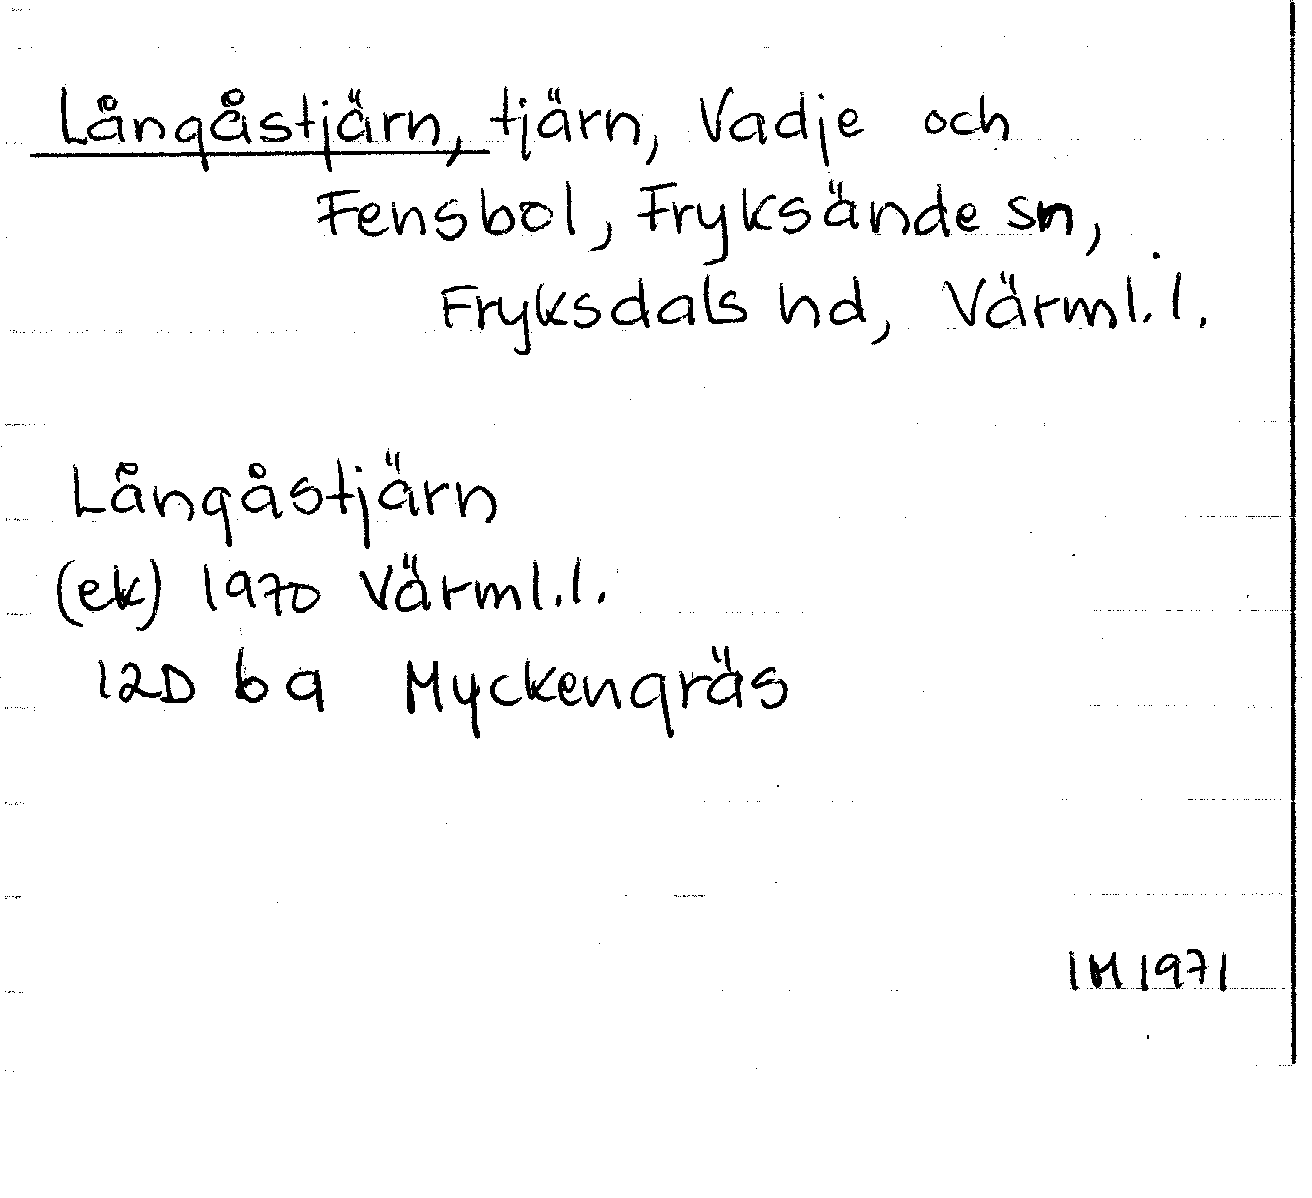 Långåstjärn, tjärn, Vadje och
Fensbol, Fryksände sn,
Fryksdals hd, Värml. l.
Långåstjärn
(ek) 1970 Värml. l.
12D 6a Myckengräs
IM 1971